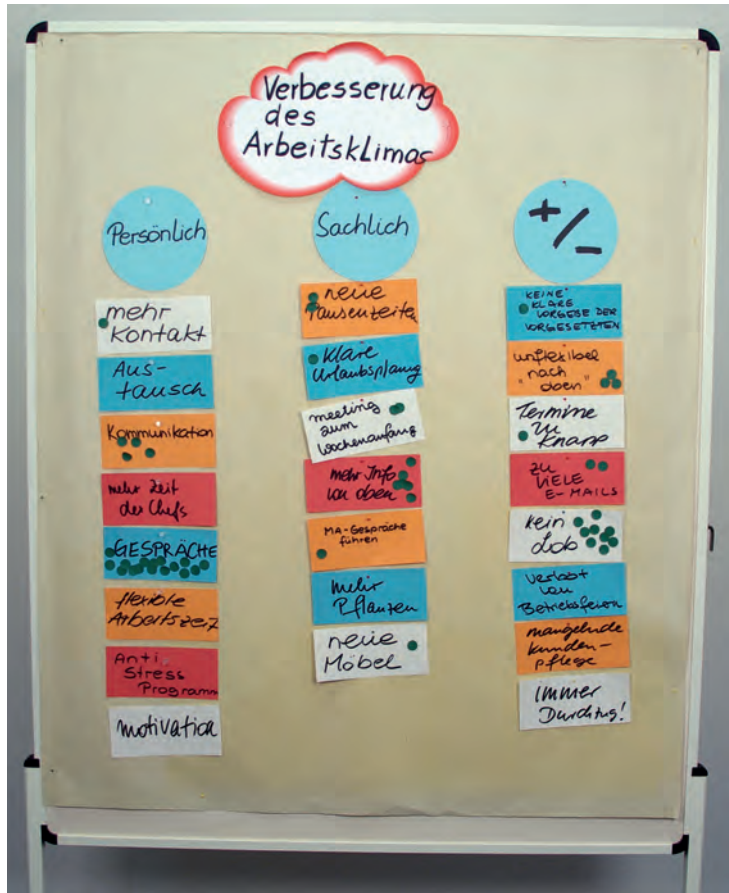 Verbesserung
des
Arbeitsklimas
Persönlich
mehr
Kontakt
Aus-
tausch
Kommunikation
mehr Zeit
des Chefs
GESPRÄCHE
flexible
Arbeitszeit
Anti
Stress
Programm
motivation
Sachlich
neue
Pausenzeiten
klare
Urlaubsplanung
meeting
zum
Wochenanfang
mehr Info
von oben
MA-Gespräche
führen
mehr
Pflanzen
neue
Möbel
+/-
KEINE
KLARE
VORGESE DER
VORGESETZTEN
unflexibel
nach
"oben"
Termine
zu
Knapp
ZU
VIELE
E-MAILS
kein
Lob
von
Betriebsferien
mangelnde
Kunden-
pflege
immer
Durchzug!